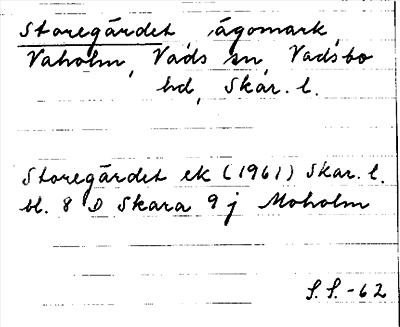 Storegärdet, ägomark,
Vaholm, Vads sn, Vadsbo
hd, Skar. l.
Storegärdet ek (1961) Skar. l.
bl. 8 D Skara 9 j Moholm
S.S.-62